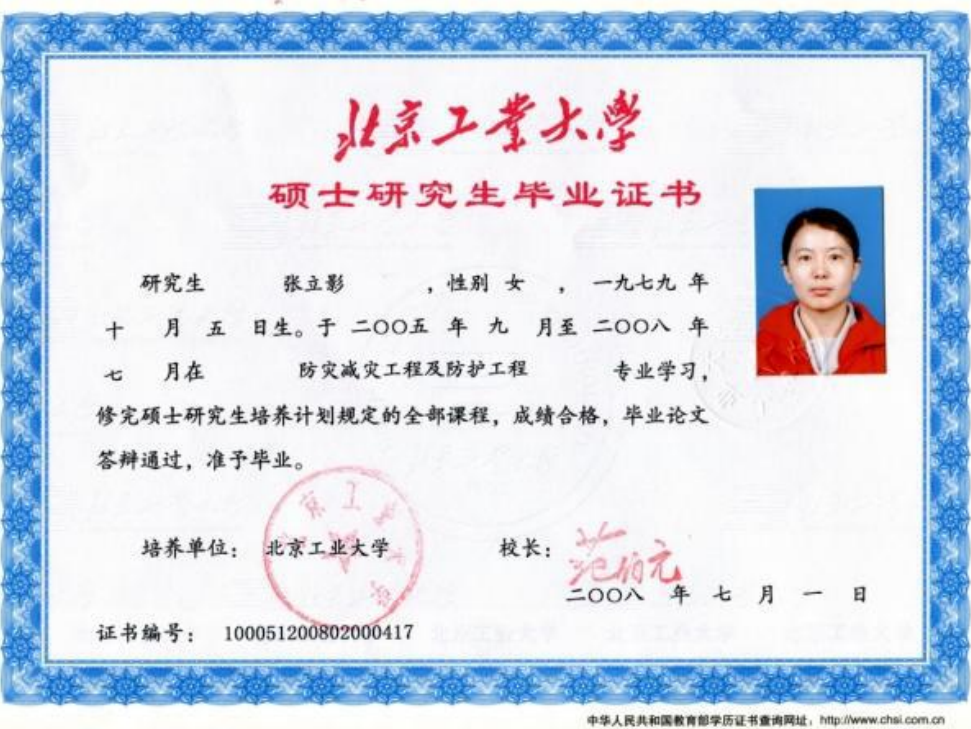 北京工業大學
硕士研究生毕业证书
研究生 张立影 ，性别 女 ， 一九七九 年
十 月 五 日生。于 二〇〇五 年 九 月至 二〇〇八 年
七 月在 防灾减灾工程及防护工程 专业学习，
修完硕士研究生培养计划规定的全部课程，成绩合格，毕业论文
答辩通过，准予毕业。
培养单位： 北京工业大学 校长： 范伯元
二〇〇八 年 七 月 一 日
证书编号： 100051200802000417
中华人民共和国教育部学历证书查询网址：http://www.chsi.com.cn